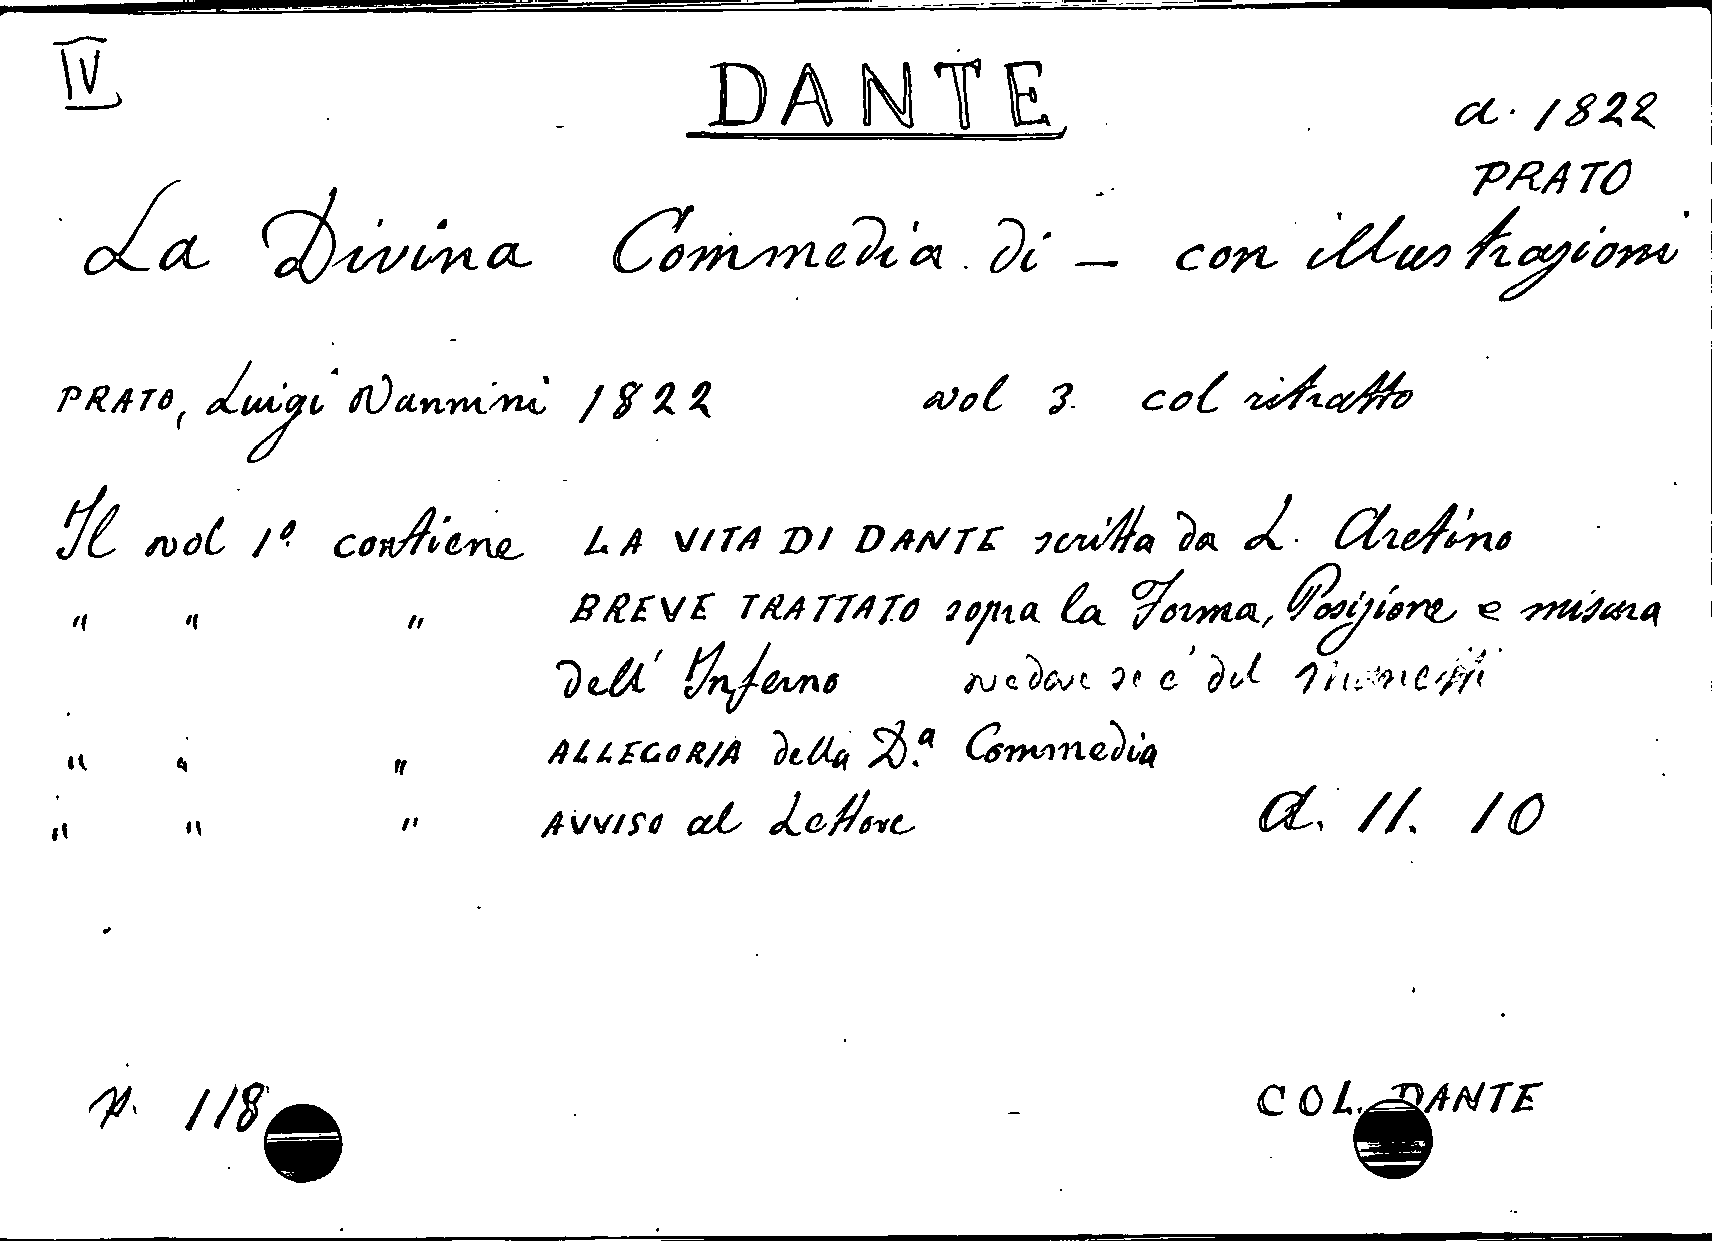 IV
DANTE
a. 1822
PRATO
La Divina Commedia di — con illustrazioni
PRATO, Luigi Vannini 1822 vol 3. col ritratto
Il vol 1º contiene LA VITA DI DANTE scritta da L. Aretino
" " " BREVE TRATTATO sopra la Forma, Posizione e misura
dell' Inferno vedere se è del
" " " ALLEGORIA della D.ª Commedia
" " " AVVISO al Lettore a. 11. 10
p. 118
COL. DANTE